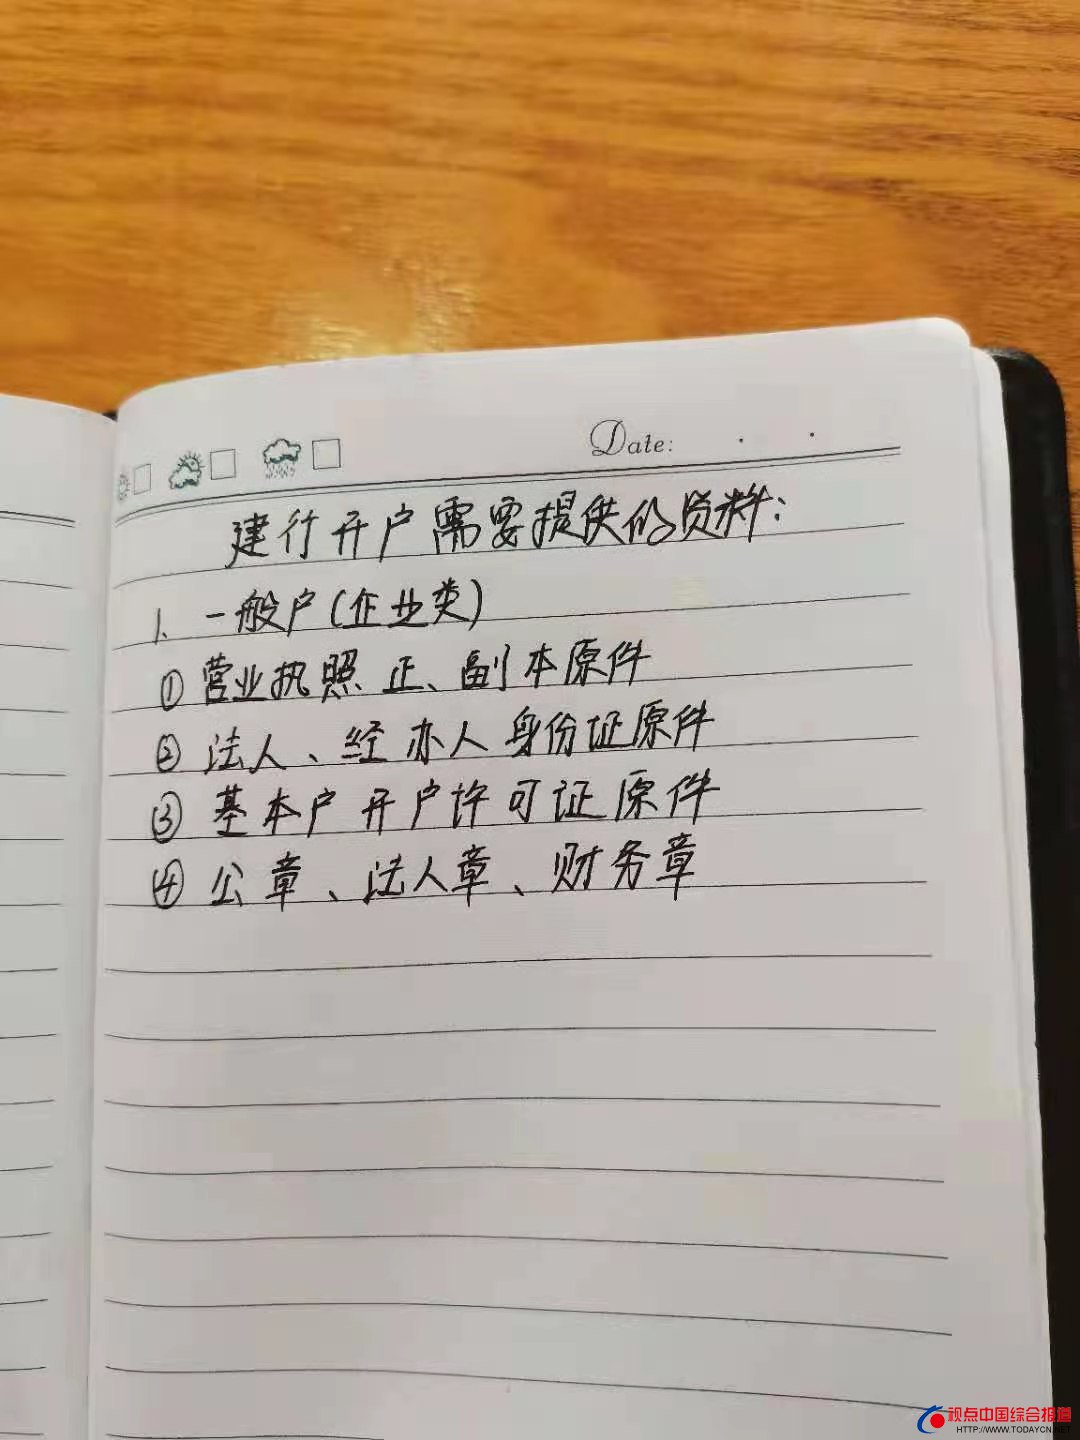 Date: . .
建行开户需要提供的资料:
1、一般户(企业类)
①营业执照 正、副本原件
②法人、经办人身份证原件
③基本户开户许可证原件
④公章、法人章、财务章
视点中国综合报道
HTTP://WWW.TODAYCN.NET